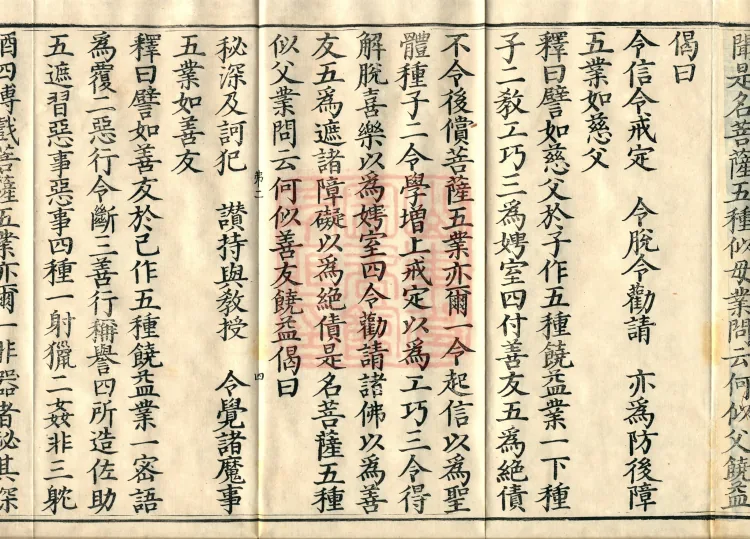 聞是名菩薩五種似母業問云何似父饒益
偈曰
令信令戒定　令脫令勸請　亦為防後障
五業如慈父
釋曰譬如慈父於子作五種饒益業一下種
子二教工巧三為娉室四付善友五為絶債
不令後償菩薩五業亦爾一令起信以為聖
體種子二令學增上戒定以為工巧三令得
解脫喜樂以為娉室四令勸請諸佛以為善
友五為遮諸障礙以為絶債是名菩薩五種
似父業問云何似善友饒益偈曰
第二　四
秘深及訶犯　讚持與教授　令覺諸魔事
五業如善友
釋曰譬如善友於己作五種饒益業一密語
為覆二惡行令斷三善行稱譽四所造佐助
五遮習惡事惡事四種一射獵二姦非三躭
酒四博戲菩薩五業亦爾一非器者秘其深